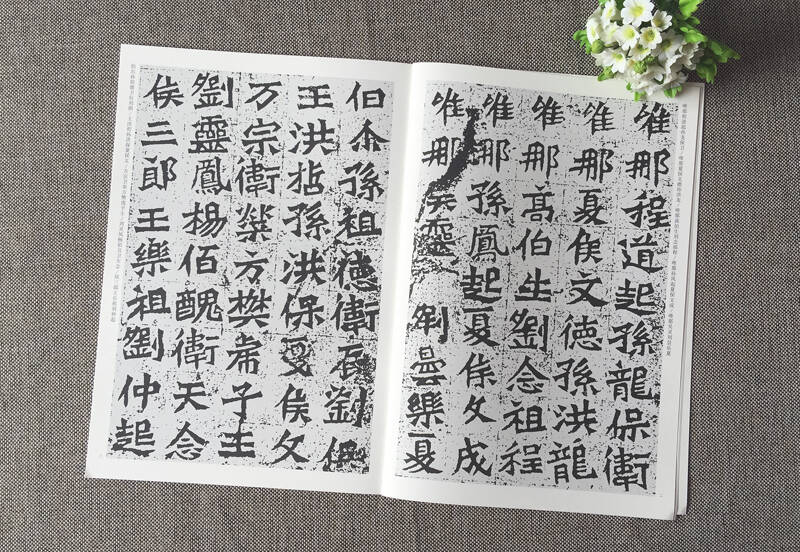 唯那程道起孫龍保衛
唯那夏侯文德孫洪龍
唯那高伯生劉念祖程
唯那孫鳳起夏侯文成
唯那靈劉曇樂夏
伯尒孫祖德衛辰劉
王洪拈孫洪保夏侯文
万宗衛榮方樊虎子王
劉靈鳳楊佰醜衛天念
侯三郎王樂祖劉仲起